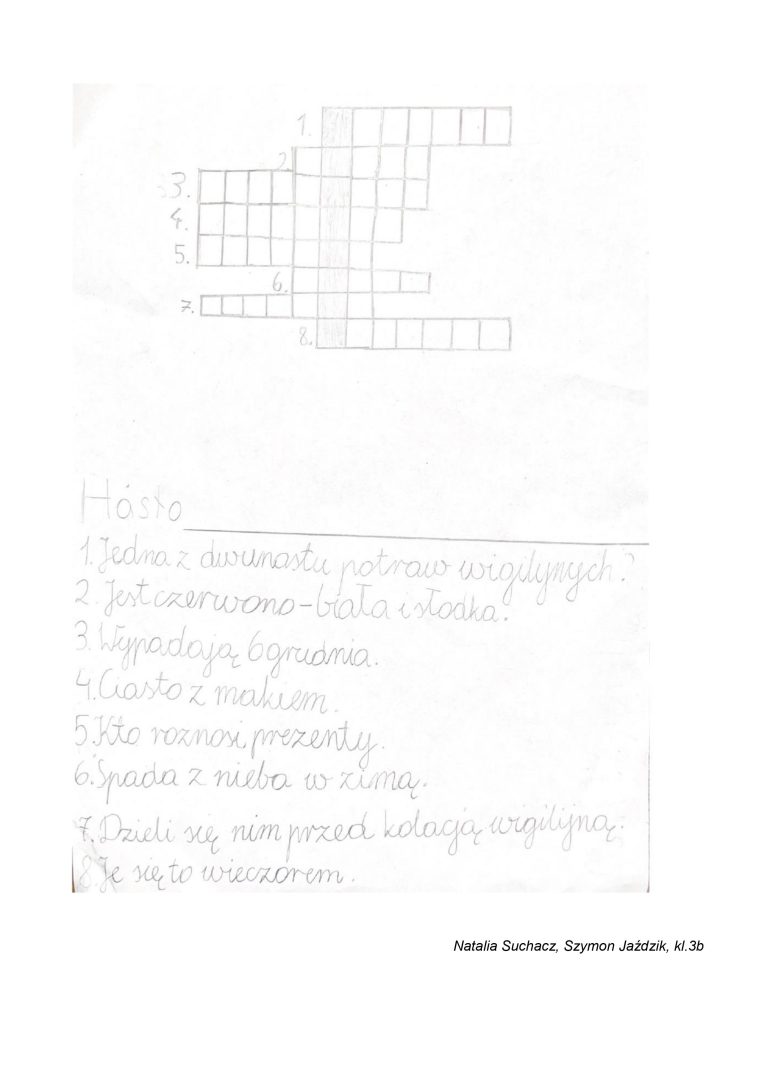 1.
2.
3.
4.
5.
6.
7.
8.
Hasło
1. Jedna z dwunastu potraw wigilijnych?
2. Jest czerwono-biała i słodka.
3. Wypadają 6 grudnia.
4. Ciasto z makiem.
5. Kto roznosi prezenty.
6. Spada z nieba w zimą.
7. Dzieli się nim przed kolacją wigilijną.
8. Je się to wieczorem.
Natalia Suchacz, Szymon Jaździk, kl.3b